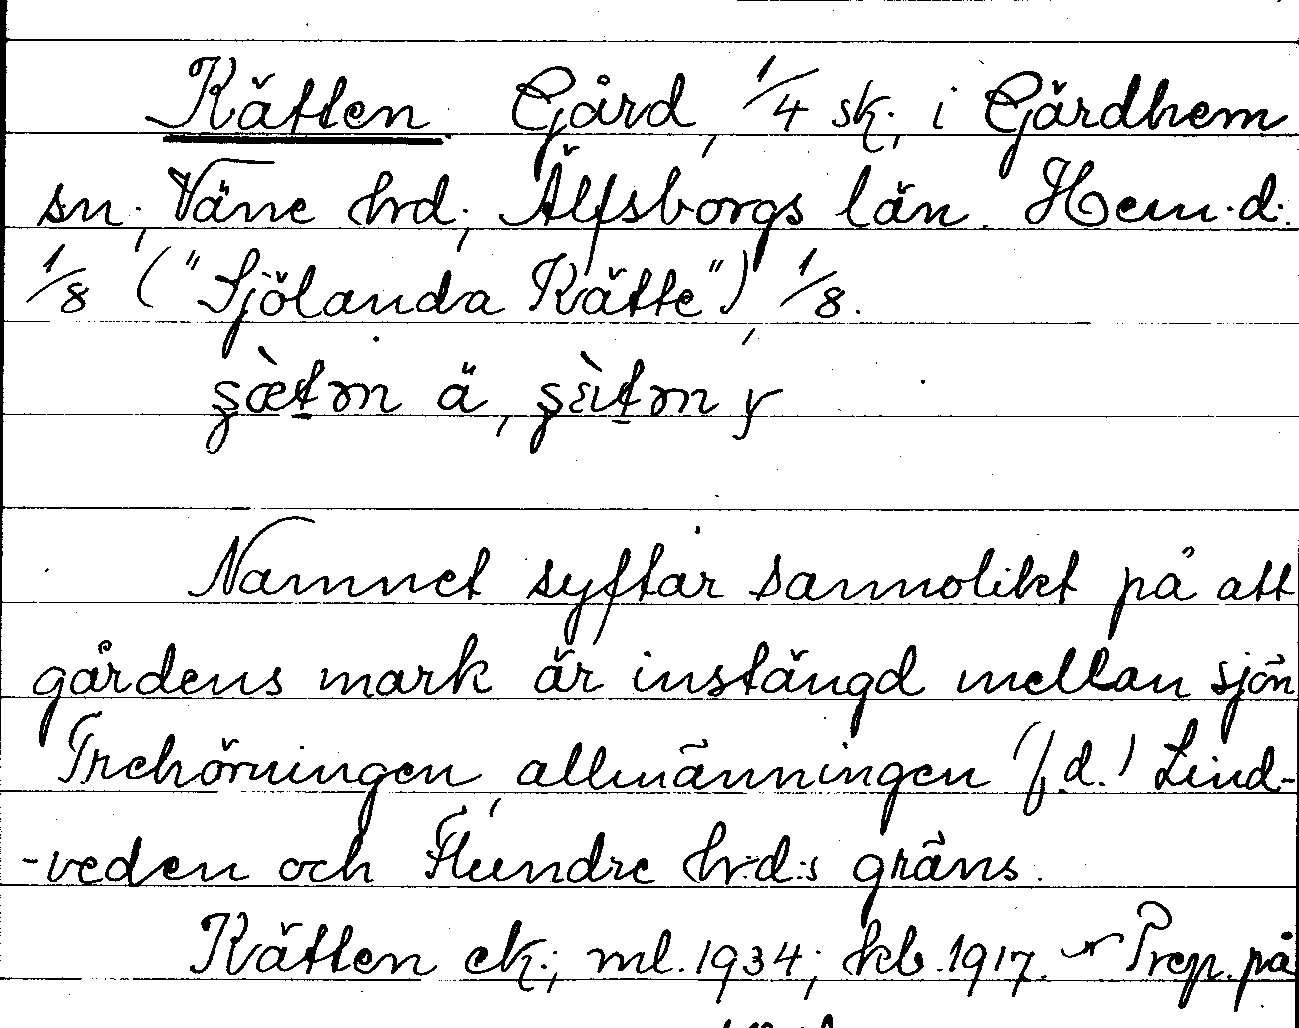 Kätten. Gård, 1/4 sk., i Gärdhem
sn, Väne hrd, Älfsborgs län. Hem.d:
1/8 ("Sjölanda Kätte"), 1/8.
ä, y
Namnet syftar sannolikt på att
gårdens mark är instängd mellan sjön
Trehörningen, allmänningen (f.d.) Lind-
-veden och Flundre hrd:s gräns.
Kätten ek.; ml. 1934; kb. 1917. Prep. på